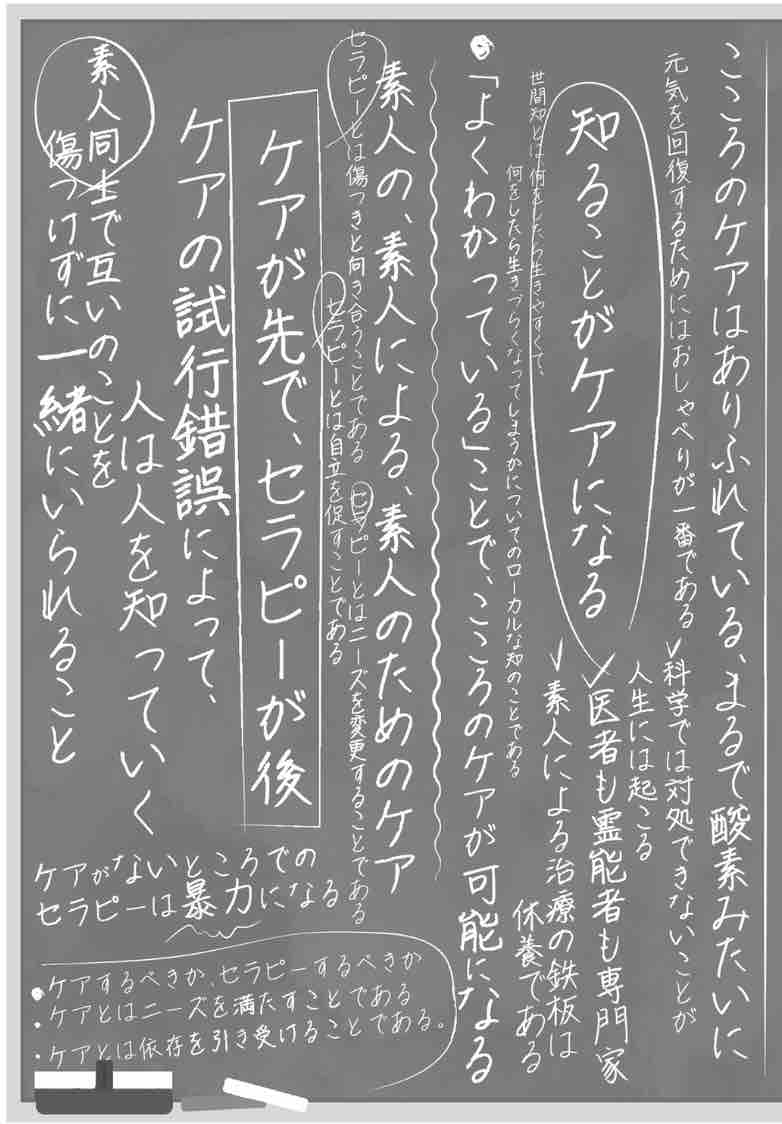 こころのケアはありふれている、まるで酸素みたいに
元気を回復するためにはおしゃべりが一番である
科学では対処できないことが
人生には起こる
知ることがケアになる
医者も霊能者も専門家
素人による治療の鉄板は
休養である
世間知とは何をしたら生きやすくて、
何をしたら生きづらくなってしまうかについてのローカルな知のことである
「よくわかっている」ことで、こころのケアが可能になる
素人の、素人による、素人のためのケア
セラピーとは傷つきと向き合うことである
セラピーとはニーズを変更することである
セラピーとは自立を促すことである
ケアが先で、セラピーが後
ケアの試行錯誤によって、
人は人を知っていく
素人同士で互いのことを
傷つけずに一緒にいられること
ケアがないところでの
セラピーは暴力になる
ケアするべきか、セラピーするべきか
ケアとはニーズを満たすことである
ケアとは依存を引き受けることである。